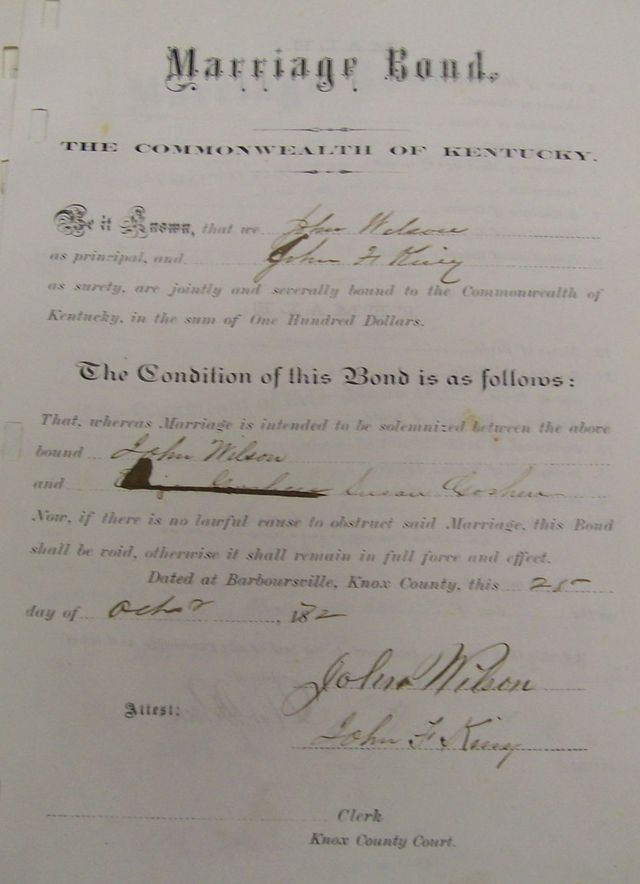 Marriage Bond.
THE COMMONWEALTH OF KENTUCKY.
Be it Known, that we John Wilson
as principal, and John F King
as surety, are jointly and severally bound to the Commonwealth of
Kentucky, in the sum of One Hundred Dollars.
The Condition of this Bond is as follows:
That, whereas Marriage is intended to be solemnized between the above
bound John Wilson
and Susan Goshen
Now, if there is no lawful cause to obstruct said Marriage, this Bond
shall be void, otherwise it shall remain in full force and effect.
Dated at Barboursville, Knox County, this 25
day of Octor, 1872
John Wilson
Attest:
John F King
Clerk
Knox County Court.